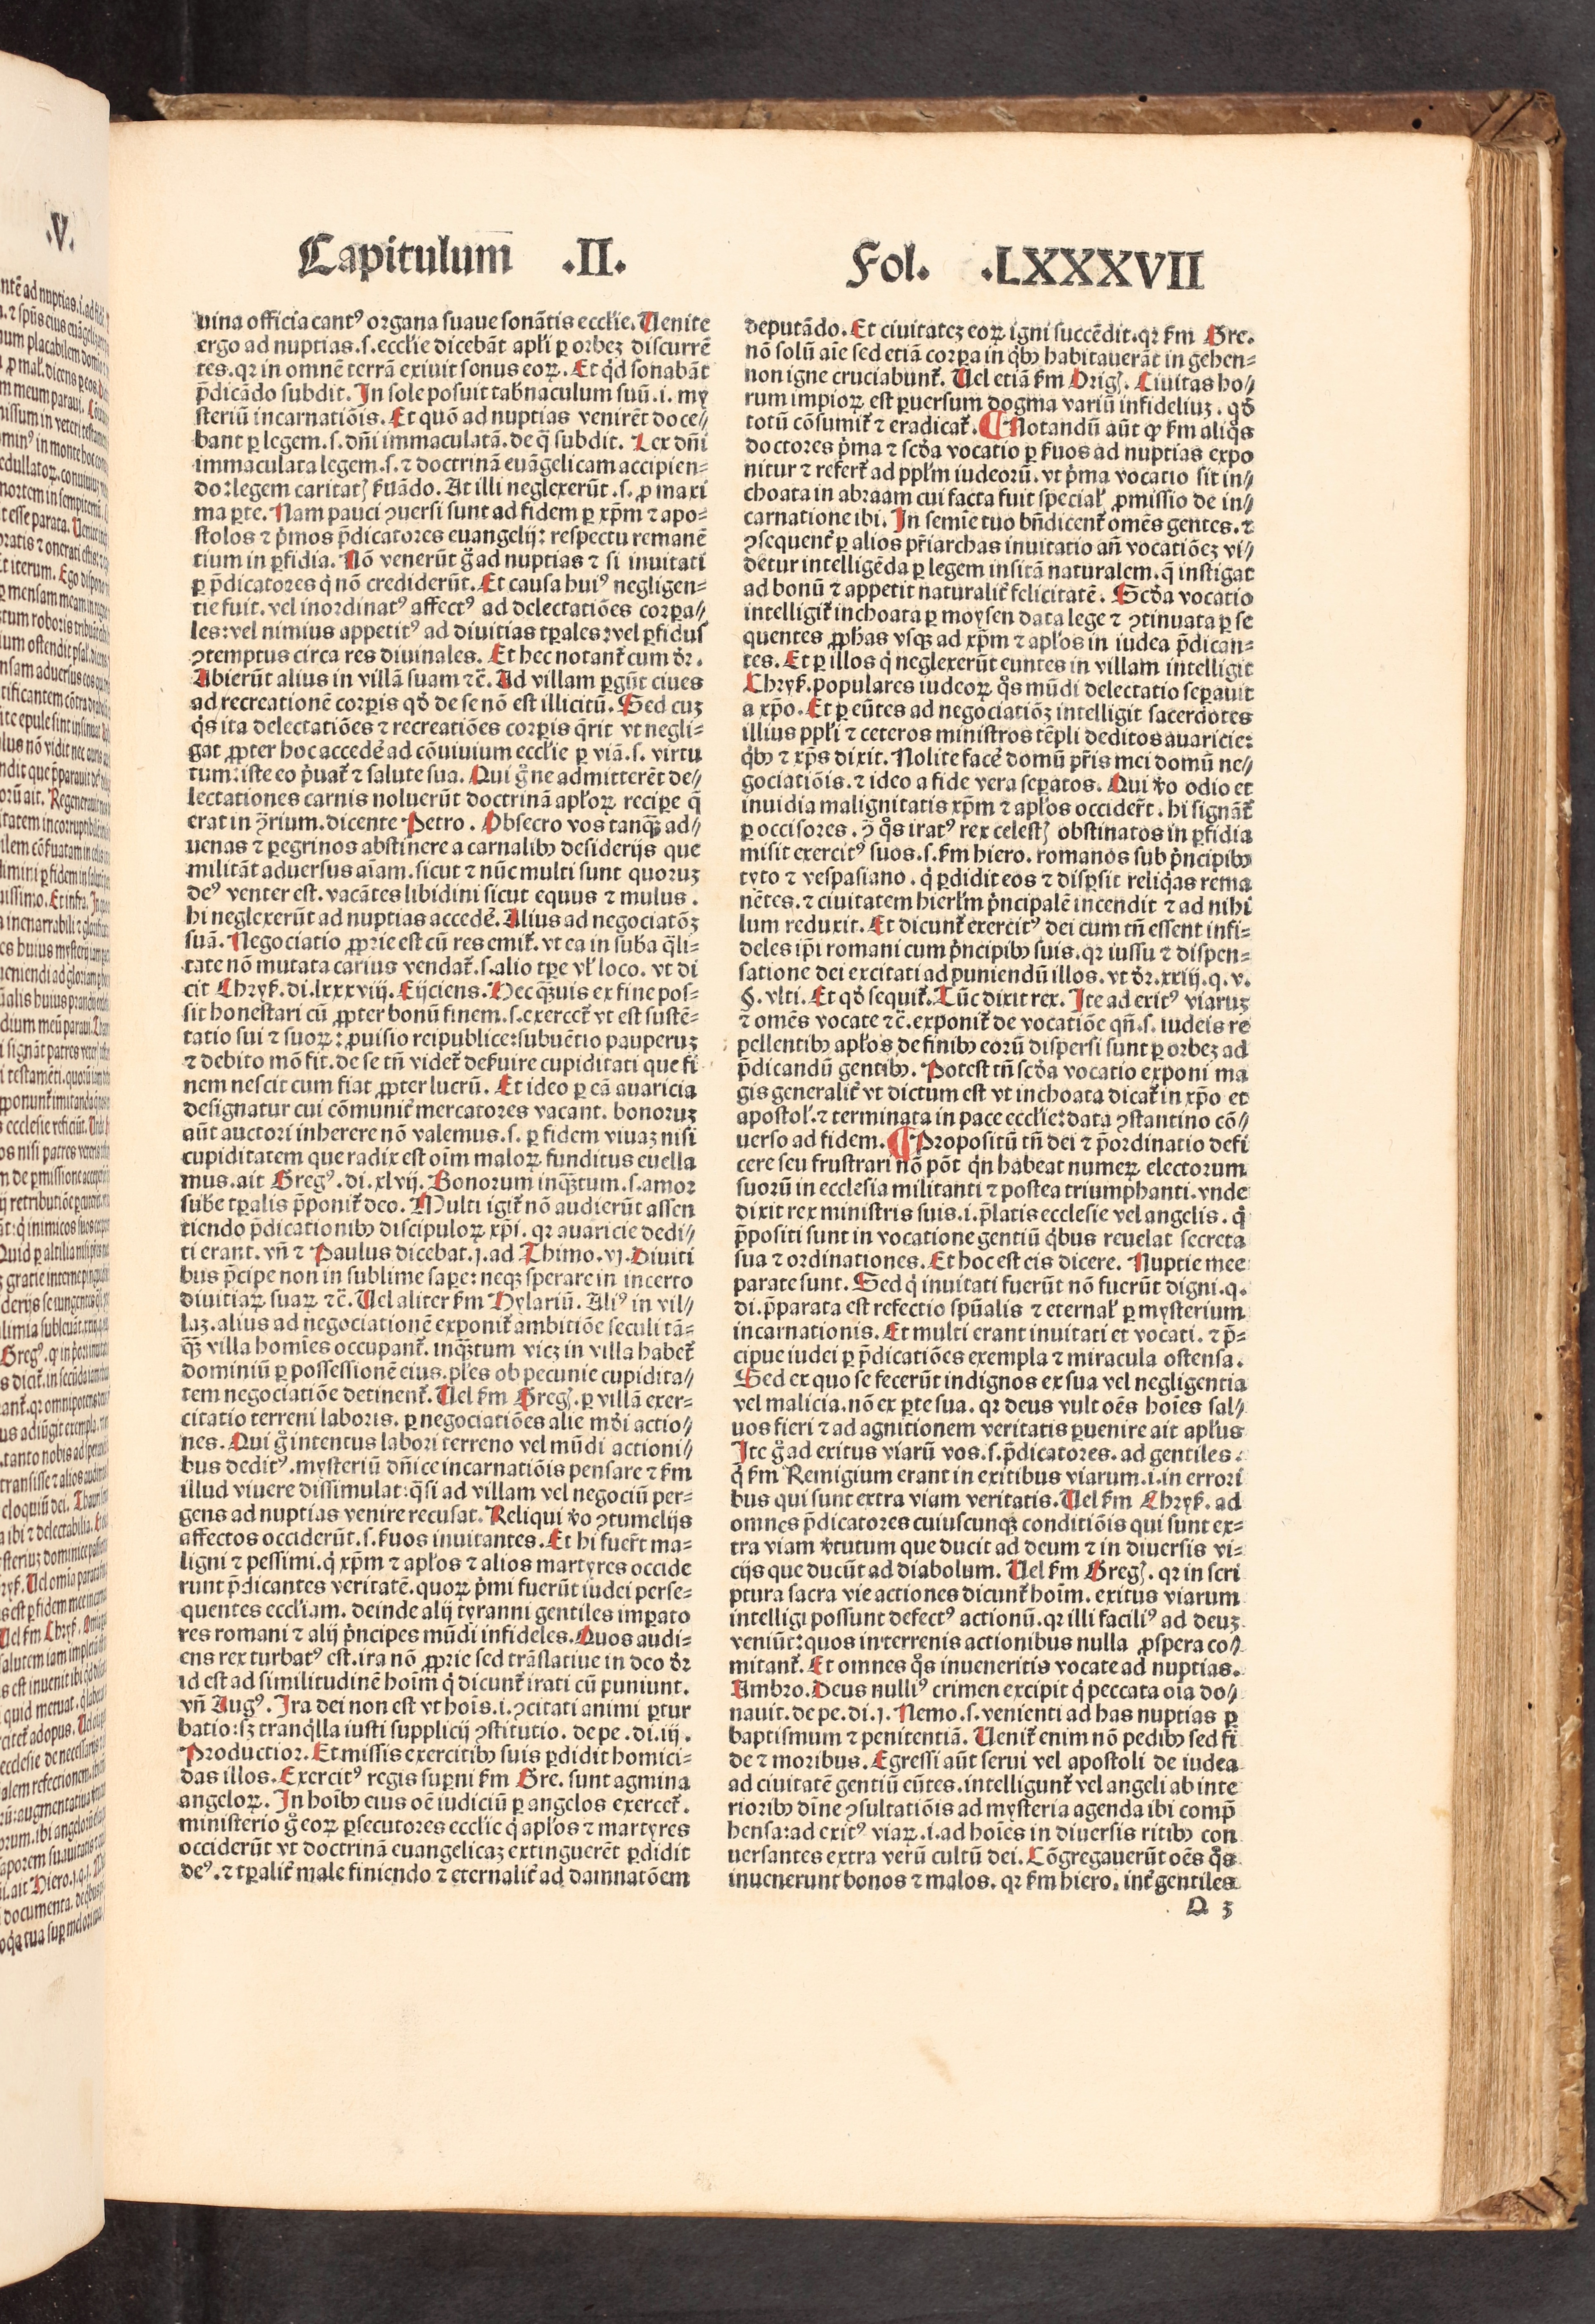 .V.
Capitulum̄ .II.
Fol. .LXXXXVII
uina officia cantꝰ organa suaue sonātis ecclīe. Uenite
ergo ad nuptias.s.ecclīe dicebāt apłi ꝑ orbeꝫ discurrē
tes.qꝛ in omnē terrā exiuit sonus eoꝝ. Et qͥd sonabāt
p̄dicādo subdit. In sole posuit tab̄naculum suū.i. my
steriū incarnatiōis. Et quō ad nuptias venirēt doce⸗
bant ꝑ legem.s. dn̄i immaculatā.de q̄ subdit. Lex dn̄i
immaculata legem.s.⁊ doctrinā euāgelicam accipien⸗
do:legem caritatꝭ ẜuādo. At illi neglexerūt .s. ꝓ maxi
ma ꝑte. Nam pauci ꝯuersi sunt ad fidem ꝑ xp̄m ⁊ apo⸗
stolos ⁊ pͥmos p̄dicatores euangelij: respectu remanē
tium in ꝑfidia. Nō venerūt gͦ ad nuptias ⁊ si inuitati
ꝑ p̄dicatores qͥ nō crediderūt. Et causa huiꝰ negligen⸗
tie fuit. vel inordinatꝰ affectꝰ ad delectatiōes corꝑa⸗
les:vel nimius appetitꝰ ad diuitias tꝑales:vel ꝑfidus
ꝯtemptus circa res diuinales. Et hec notant᷑ cum dr̄.
Abierūt alius in villā suam ⁊c̄. Ad villam ꝑgūt ciues
ad recreationē corꝑis qd̓ de se nō est illicitū. Sed cuꝫ
qͥs ita delectatiōes ⁊ recreatiōes corꝑis q̄rit vt negli⸗
gat ꝓpter hoc accedēꝰ ad cōuiuium ecclīe ꝑ viā.s. virtu
tum:iste eo pͥuat᷑ ⁊ salute sua. Qui gͦ ne admitterēt de⸗
lectationes carnis noluerūt doctrinā apłoꝝ recipe q̄
erat in ꝯ̄rium.dicente Petro. Obsecro vos tanqꝫ̄ ad⸗
uenas ⁊ ꝑegrinos abstinere a carnalibꝫ desiderijs que
militāt aduersus aīam.sicut ⁊ nūc multi sunt quoruꝫ
deꝰ venter est. vacātes libidini sicut equus ⁊ mulus.
hi neglexerūt ad nuptias accedē. Alius ad negociatōꝫ
suā. Negociatio ꝓprie est cū res emit᷑. vt ea in sub̄a q̄li⸗
tate nō mutata carius vendat᷑.s.alio tꝑe vł loco. vt di
cit Chryẜ. di.lxxxviij. Eijciens. Hec qꝫ̄uis ex fine pos⸗
sit honestari cū ꝓpter bonū finem.s.exercet᷑ vt est sustē⸗
tatio sui ⁊ suoꝝ: ꝓuisio reipublice:subuētio pauperuꝫ
⁊ debito mō fit. de se tn̄ videt᷑ deẜuire cupiditati que fi
nem nescit cum fiat ꝓpter lucrū. Et ideo ꝑ eā auaricia
designatur cui cōmunit᷑ mercatores vacant. bonoruꝫ
aūt auctori inherere nō valemus.s. ꝑ fidem viuaꝫ nisi
cupiditatem que radix est oīm maloꝝ funditus euella
mus.ait Gregꝰ. di.xlvij. Bonorum inqꝫ̄tum.s.amor
sub̄e tꝑalis p̄ponit᷑ deo. Multi igit᷑ nō audierūt assen
tiendo p̄dicationibꝫ discipuloꝝ xp̄i. qꝛ auaricie dedi⸗
ti erant. vn̄ ⁊ Paulus dicebat.j.ad Thimo.vj.Diuiti
bus p̄cipe non in sublime saꝑe: neqꝫ sperare in incerto
diuitiaꝝ suaꝝ ⁊c̄. Uel aliter ẜm Hylariū. Aliꝰ in vil⸗
laꝫ.alius ad negociationē exponit᷑ ambitiōe seculi tā⸗
qꝫ̄ villa homīes occupant᷑. inqꝫ̄tum vicꝫ in villa habet᷑
dominiū ꝑ possessionē eius.ples ob pecunie cupidita⸗
tem negociatiōe detinent᷑. Uel ẜm Gregꝭ. ꝑ villā exer⸗
citatio terreni laboris. ꝑ negociatiōes alie mūdi actio⸗
nes. Qui gͦ intentus labori terreno vel mūdi actioni⸗
bus deditꝰ.mysteriū dn̄ice incarnatiōis pensare ⁊ ẜm
illud viuere dissimulat: q̄si ad villam vel negociū per⸗
gens ad nuptias venire recusat. Reliqui ꝟo ꝯtumelijs
affectos occiderūt.s.ẜuos inuitantes. Et hi fuerūt ma⸗
ligni ⁊ pessimi.qͥ xp̄m ⁊ apłos ⁊ alios martyres occide
runt p̄dicantes veritatē.quoꝝ pͥmi fuerūt iudei perse⸗
quentes eccliam. deinde alij tyranni gentiles impato
res romani ⁊ alij pͥncipes mūdi infideles.Quos audi⸗
ens rex turbatꝰ est.ira nō ꝓprie sed trāslatiue in deo dr̄
id est ad similitudinē hoīm qͥ dicunt᷑ irati cū puniunt.
vn̄ Augꝰ. Ira dei non est vt hoīs.i.ꝯcitati animi ꝑtur
batio:sꝫ tranqͥlla iusti supplicij ꝯstitutio. de pe.di.iij.
Productior.Et missis exercitibꝫ suis ꝑdidit homici⸗
das illos.Exercitꝰ regis suꝑni ẜm Gre. sunt agmina
angeloꝝ. In hoībꝫ eius oē iudiciū ꝑ angelos exercet᷑.
ministerio gͦ eoꝝ ꝑsecutores ecclīe qͥ apłos ⁊ martyres
occiderūt vt doctrinā euangelicaꝫ extinguerēt ꝑdidit
deꝰ.⁊ tꝑalit᷑ male finiendo ⁊ eternalit᷑ ad damnatōem
deputādo. Et ciuitateꝫ eoꝝ igni succēdit.qꝛ ẜm Gre.
nō solū aīe sed etiā corꝑa in qͥbꝫ habitauerāt in gehen⸗
non igne cruciabunt᷑. Uel etiā ẜm Origꝭ. Ciuitas ho⸗
rum impioꝝ est ꝑuersum dogma variū infideliuꝫ.qd̓
totū cōsumit᷑ ⁊ eradicat᷑. ¶ Notandū aūt ꝙ ẜm aliqͦs
doctores pͥma ⁊ scd̓a vocatio ꝑ ẜuos ad nuptias expo
nitur ⁊ refert᷑ ad ppłm iudeorū.vt pͥma vocatio sit in⸗
choata in abraam cui facta fuit specialꝭ ꝓmissio de in⸗
carnatione ibi. In semīe tuo bn̄dicent᷑ omēs gentes.⁊
ꝯsequent᷑ ꝑ alios pr̄iarchas inuitatio an̄ vocatiōeꝫ vi⸗
detur intelligēda ꝑ legem insitā naturalem.q̄ instigat
ad bonū ⁊ appetit naturalit᷑ felicitatē. Scd̓a vocatio
intelligit᷑ inchoata ꝑ moysen data lege ⁊ ꝯtinuata ꝑ se
quentes ꝓphas vsqꝫ ad xp̄m ⁊ apłos in iudea p̄dican⸗
tes. Et ꝑ illos qͥ neglexerūt euntes in villam intelligit
Chryẜ.populares iudeoꝝ qͦs mūdi delectatio seꝑauit
a xp̄o. Et ꝑ eūtes ad negociatiōꝫ intelligit sacerdotes
illius ppłi ⁊ ceteros ministros tēpli deditos auaricie:
qͥbꝫ ⁊ xp̄s dixit. Nolite facē domū pr̄is mei domū ne⸗
gociatiōis.⁊ ideo a fide vera seꝑatos. Qui ꝟo odio et
inuidia malignitatis xp̄m ⁊ apłos occider̄t. hi signāt᷑
ꝑ occisores. ꝯ̄ qͦs iratꝰ rex celestꝭ obstinatos in ꝑfidia
misit exercitꝰ suos.s.ẜm hiero. romanos sub pͥncipibꝫ
tyto ⁊ vespasiano. qͥ ꝑdidit eos ⁊ disꝑsit reliqͥas rema
nētes.⁊ ciuitatem hierłm pͥncipalē incendit ⁊ ad nihi
lum reduxit. Et dicunt᷑ exercitꝰ dei cum tn̄ essent infi⸗
deles ip̄i romani cum pͥncipibꝫ suis.qꝛ iussu ⁊ dispen⸗
satione dei excitati ad puniendū illos. vt dr̄.xxiij.q.v.
§.vlti. Et qd̓ sequit᷑. Tūc dixit rex. Ite ad exitꝰ viaruꝫ
⁊ omēs vocate ⁊c̄.exponit᷑ de vocatiōe qn̄.s. iudeis re
pellentibꝫ apłos de finibꝫ eorū dispersi sunt ꝑ orbeꝫ ad
p̄dicandū gentibꝫ. Potest tn̄ scd̓a vocatio exponi ma
gis generalit᷑ vt dictum est vt inchoata dicat᷑ in xp̄o et
apostoł.⁊ terminata in pace ecclīe:data ꝯstantino cō⸗
uerso ad fidem. ¶ Propositū tn̄ dei ⁊ p̄ordinatio defi
cere seu frustrari nō pōt qͥn habeat numeꝝ electorum
suorū in ecclesia militanti ⁊ postea triumphanti.vnde
dixit rex ministris suis.i.p̄latis ecclesie vel angelis.qͥ
p̄positi sunt in vocatione gentiū qͥbus reuelat secreta
sua ⁊ ordinationes. Et hoc est eis dicere. Nuptie mee
parate sunt. Sed qͥ inuitati fuerūt nō fuerūt digni.q.
di.p̄parata est refectio spūalis ⁊ eternał ꝑ mysterium
incarnationis. Et multi erant inuitati et vocati.⁊ p̄⸗
cipue iudei ꝑ p̄dicatiōes exempla ⁊ miracula ostensa.
Sed ex quo se fecerūt indignos ex sua vel negligentia
vel malicia.nō ex ꝑte sua. qꝛ deus vult oēs hoīes sal⸗
uos fieri ⁊ ad agnitionem veritatis ꝑuenire ait apłus
Ite gͦ ad exitus viarū vos.s.p̄dicatores.ad gentiles.
qͥ ẜm Remigium erant in exitibus viarum.i.in errori
bus qui sunt extra viam veritatis. Uel ẜm Chryẜ. ad
omnes p̄dicatores cuiuscunqꝫ conditiōis qui sunt ex⸗
tra viam ꝟtutum que ducit ad deum ⁊ in diuersis vi⸗
cijs que ducūt ad diabolum. Uel ẜm Gregꝭ. qꝛ in scri
ptura sacra vie actiones dicunt᷑ hoīm. exitus viarum
intelligi possunt defectꝰ actionū.qꝛ illi faciliꝰ ad deuꝫ
veniūt:quos in terrenis actionibus nulla ꝓspera co⸗
mitant᷑. Et omnes qͦs inueneritis vocate ad nuptias.
Ambro. Deus nulliꝰ crimen excipit qͥ peccata oīa do⸗
nauit. de pe. di.j. Nemo.s. venienti ad has nuptias ꝑ
baptismum ⁊ penitentiā. Uenit᷑ enim nō pedibꝫ sed fi
de ⁊ moribus. Egressi aūt serui vel apostoli de iudea
ad ciuitatē gentiū eūtes.intelligunt᷑ vel angeli ab inte
rioribꝫ dīne ꝯsultatiōis ad mysteria agenda ibi comp̄
hensa:ad exitꝰ viaꝝ.i.ad hoīes in diuersis ritibꝫ con
uersantes extra verū cultū dei. Cōgregauerūt oēs qͦs
inuenerunt bonos ⁊ malos. qꝛ ẜm hiero. int᷑ gentiles
Q 3